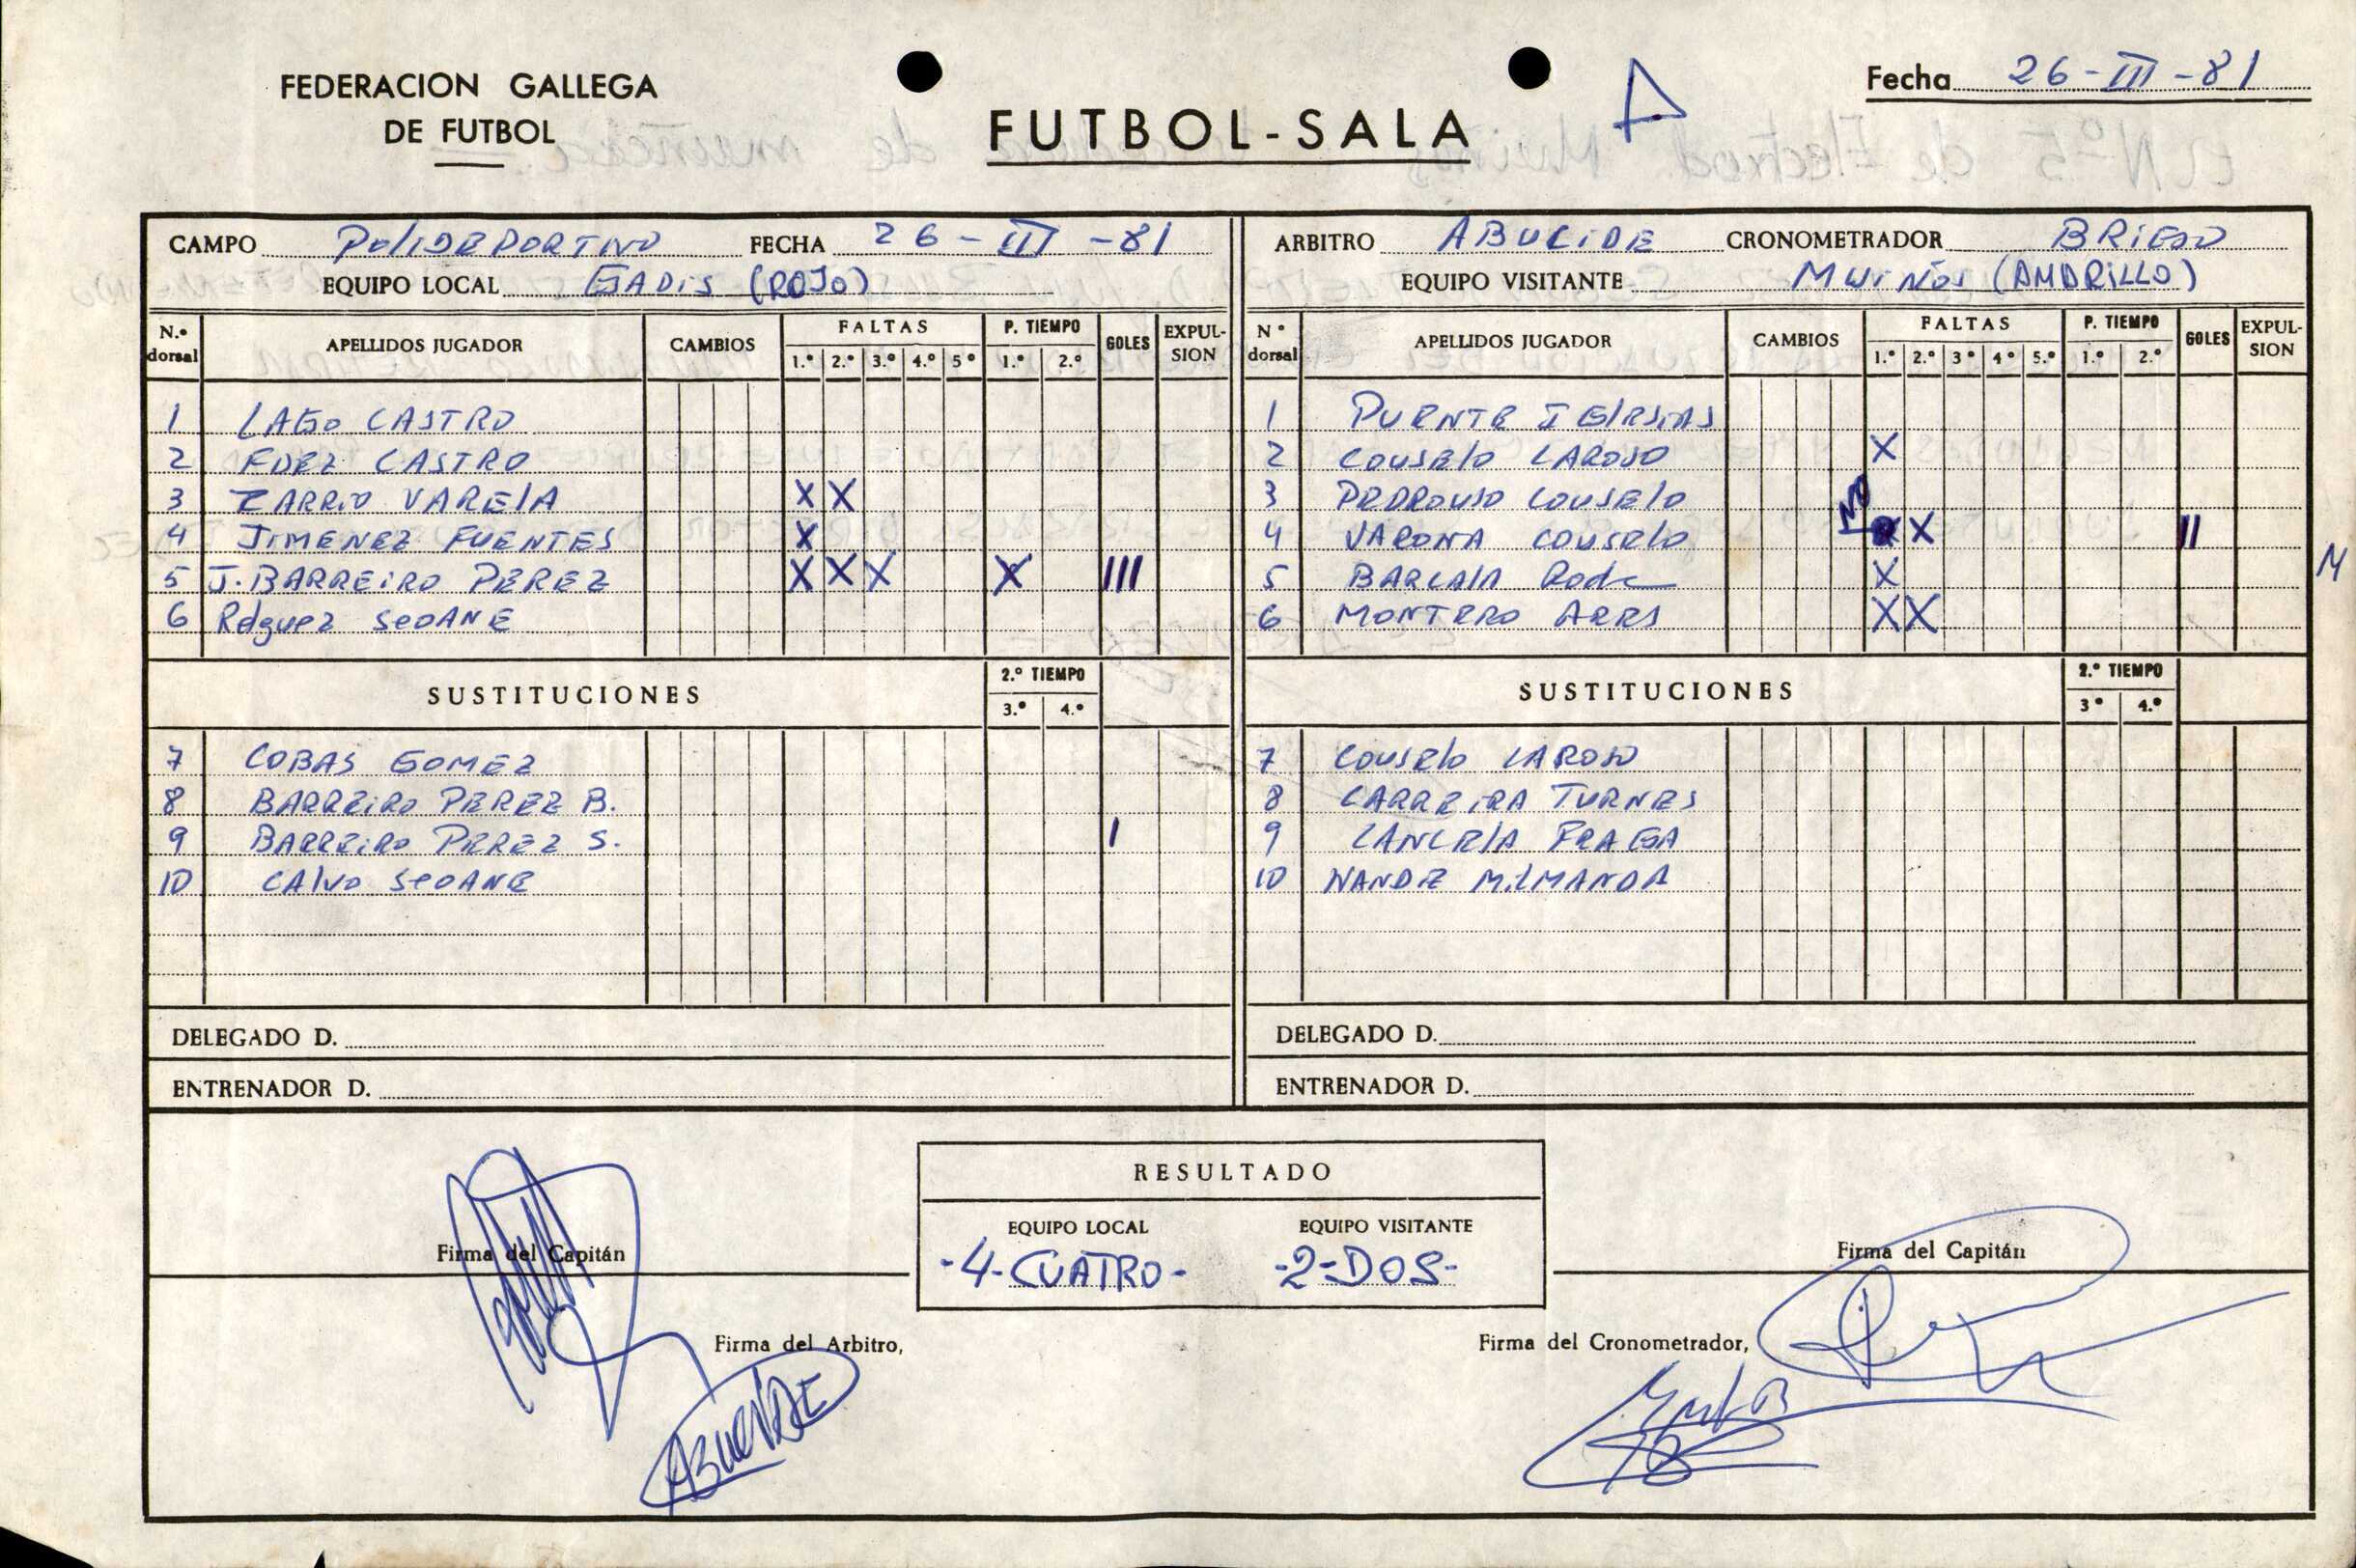 FEDERACION GALLEGA
DE FUTBOL
FUTBOL-SALA
A
Fecha 26-III-81
CAMPO POLIDEPORTIVO FECHA 26-III-81
EQUIPO LOCAL GADIS (ROJO)
N.º dorsal APELLIDOS JUGADOR CAMBIOS FALTAS 1.º 2.º 3.º 4.º 5º P. TIEMPO 1.º 2.º GOLES EXPULSION
1 LAGO CASTRO
2 FDEZ CASTRO
3 ZARRIO VARELA X X
4 JIMENEZ FUENTES X
5 J. BARREIRO PEREZ X X X X III
6 Rdguez SEOANE
SUSTITUCIONES 2.º TIEMPO 3.º 4.º
7 COBAS GOMEZ
8 BARREIRO PEREZ B.
9 BARREIRO PEREZ S. I
10 CALVO SEOANE
DELEGADO D.
ENTRENADOR D.
ARBITRO ABUCIDE CRONOMETRADOR
EQUIPO VISITANTE MUIÑOS (AMARILLO)
N º dorsal APELLIDOS JUGADOR CAMBIOS FALTAS 1.º 2.º 3º 4º 5.º P. TIEMPO 1.º 2.º GOLES EXPULSION
1 PUENTE IGLESIAS
2 COUSELO LAROSO X
3 PEDROUSO COUSELO
4 VARONA COUSELO NO X II
5 BARCALA X
M
6 MONTERO X X
SUSTITUCIONES 2.º TIEMPO 3º 4.º
7 COUSELO LAROSO
8 CARREIRA TURNES
9 CANCELA FRAGA
10 MILMANDA
DELEGADO D.
ENTRENADOR D.
RESULTADO
EQUIPO LOCAL EQUIPO VISITANTE
-4-CUATRO- -2-DOS-
Firma del Capitán
Firma del Capitán
Firma del Arbitro,
ABUCIDE
Firma del Cronometrador,